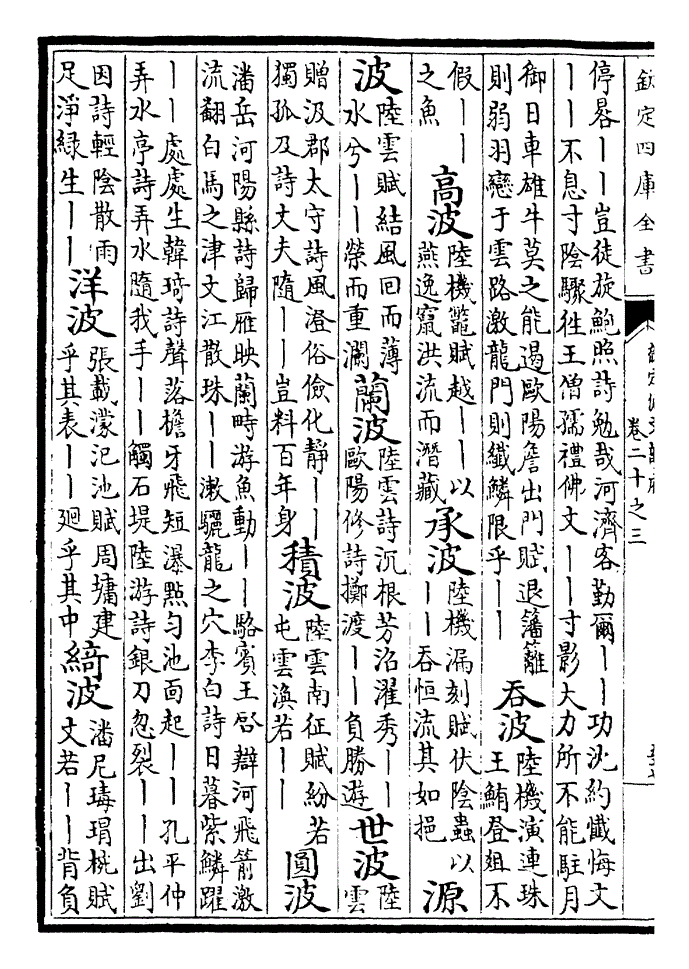 欽定四庫全書
卷二十之三
停晷——豈徒旋鮑照詩勉哉河濟客勤爾——功沈約懺悔文
——不息寸陰驟徃王僧孺禮佛文——寸影大力所不能駐月
御日車雄牛莫之能遏歐陽詹出門賦退籓籬
則弱羽戀于雲路激龍門則纖鱗限乎——
吞波
陸機演連珠
王鮪登俎不
假——
之魚
高波
陸機鼈賦越——以
燕逸竄洪流而潛藏
承波
陸機漏刻賦伏陰蟲以
——吞恒流其如挹
源
波
陸雲賦結風回而薄
水兮——榮而重瀾
蘭波
陸雲詩沉根芳沼濯秀——
歐陽修詩擲渡——負勝遊
世波
陸
雲
贈汲郡太守詩風澄俗儉化靜——
獨孤及詩丈夫隨——豈料百年身
積波
陸雲南征賦紛若
屯雲渙若——
圓波
潘岳河陽縣詩歸雁映蘭畤游魚動——駱賓王啓辯河飛箭激
流翻白馬之津文江散珠——漱驪龍之穴李白詩日暮紫鱗躍
——處處生韓琦詩聲落檐牙飛短瀑㸃勻池面起——孔平仲
弄水亭詩弄水隨我手——觸石堤陸游詩銀刀忽裂——出劉
因詩輕陰散雨
足淨綠生——
洋波
張載濛汜池賦周墉建
乎其表——廻乎其中
綺波
潘尼瑇瑁椀賦
文若——背負